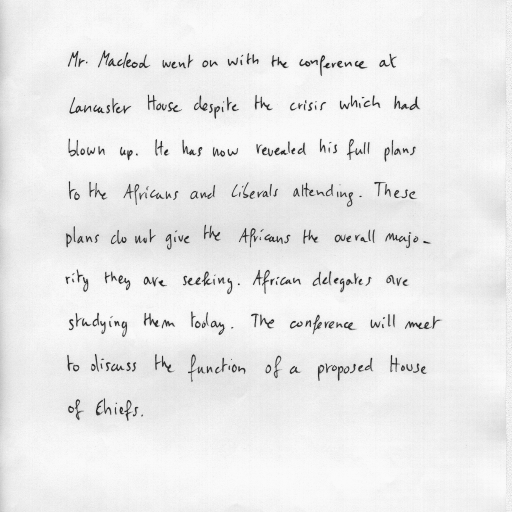 Mr. Macleod went on with the conference at
Lancaster House despite the crisis which had
blown up. He has now revealed his full plans
to the Africans and Liberals attending. These
plans do not give the Africans the overall majo-
rity they are seeking. African delegates are
studying them today. The conference will meet
to discuss the function of a proposed House
of Chiefs.